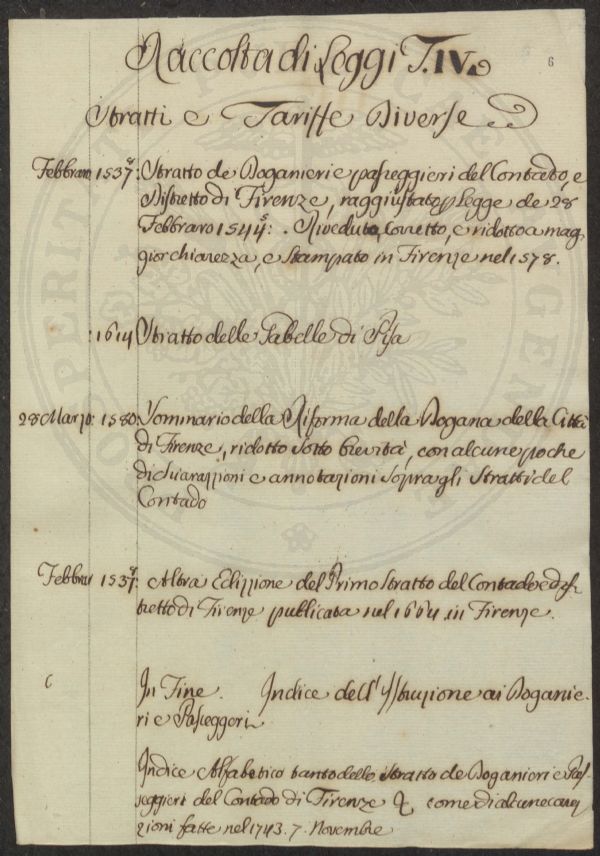 Raccolta di Leggi T. IV.
6
Stratti e Tariffe Diverse
Febbraro 1537: Stratto de Doganieri e passeggieri del Contado, e
Distretto di Firenze, raggiustato p Legge de 28
Febbraro 1544: . Riveduto, Corretto, e ridotto a mag=
gior chiarezza, e Stampato in Firenze nel 1578.
: 1614 Stratto delle Gabelle di Pisa
28 Marzo: 1580: Sommario della Riforma della Dogana della Città
di Firenze, ridotto sotto brevità, con alcune poche
dichiarazzioni e annotazioni sopra gli Stratti del
Contado
Febbrar 1537: Altra Edizzione del Primo Stratto del Contado e dis
tretto di Firenze publicata nel 1664 in Firenze.
In Fine. Indice dell' Istruzione ai Doganie:
ri e Passeggeri
Indice Alfabetico tanto dello Stratto de Doganieri e Pas=
seggieri del Contado di Firenze come di alcune
zioni fatte nel 1743. 7. Novembre